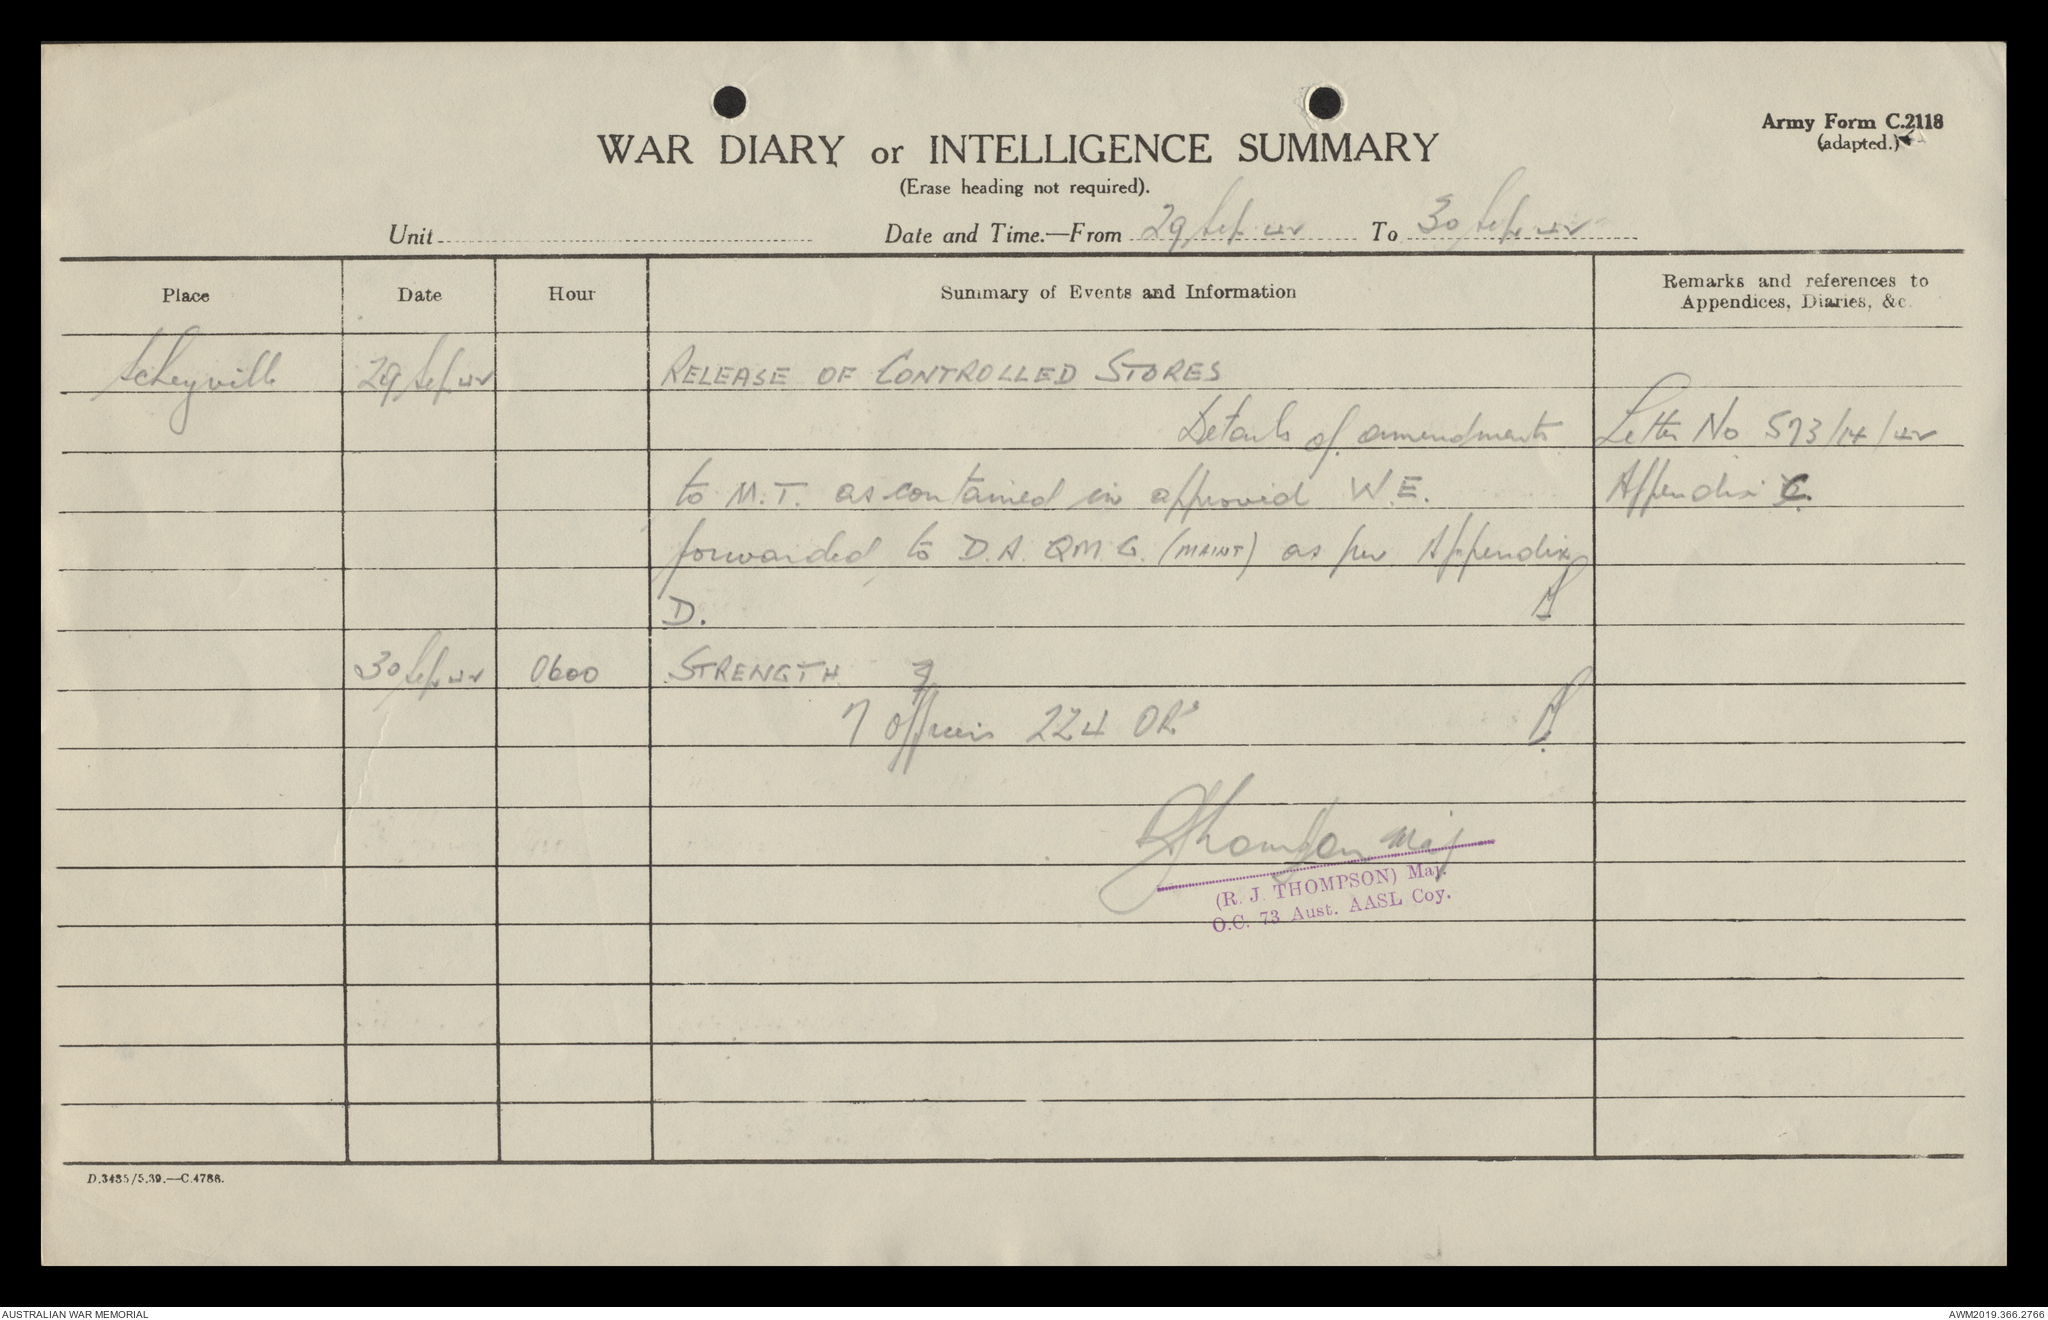 Army Form C.2118
(adapted.)
WAR DIARY or INTELLIGENCE SUMMARY
(Erase heading not required).
Unit Date and Time.—From 29 Sep 42 To 30 Sep 42
Place Date Hour Summary of Events and Information Remarks and references to
Appendices, Diaries, &c.
Scheyville 29 Sep 42 RELEASE OF CONTROLLED STORES
Details of amendments Letter No 573/14/42
to M.T. as contained in approved W.E. Appendix C.
forwarded to D.A.QMG. (MAINT) as per Appendix
D.
30 Sep 42 0600 STRENGTH
7 Officers 224 ORs
RJThompson Maj
(R. J. THOMPSON) Maj.
O.C. 73 Aust. AASL Coy.
D.3435/5.39.—C.4788.
AUSTRALIAN WAR MEMORIAL AWM2019.366.2766